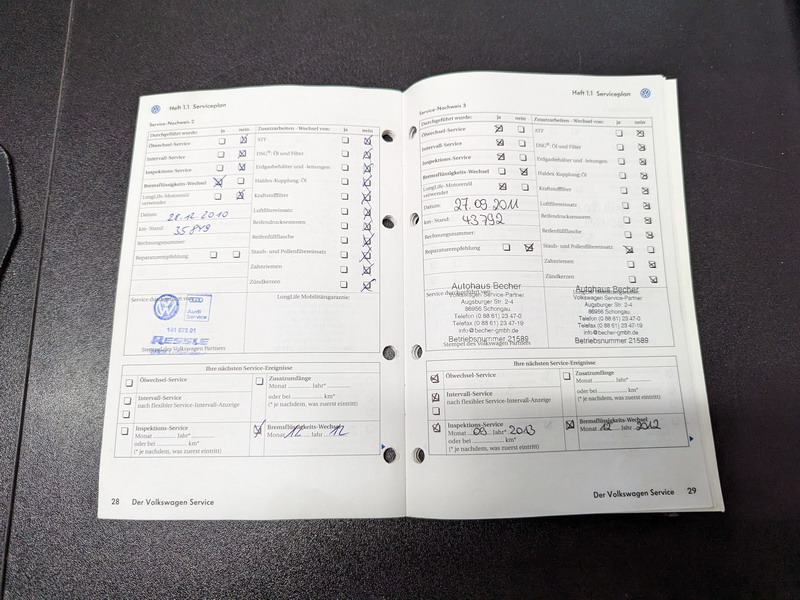 Heft 1.1 Serviceplan
Service-Nachweis 2
Durchgeführt wurde: ja nein Zusatzarbeiten - Wechsel von: ja nein
Ölwechsel-Service ATF
Intervall-Service DSG®: Öl und Filter
Inspektions-Service Erdgasbehälter und -leitungen
Bremsflüssigkeits-Wechsel Haldex-Kupplung: Öl
LongLife-Motorenöl verwendet Kraftstofffilter
Datum: 28.12.2010 Luftfiltereinsatz
km-Stand: 35849 Reifendrucksensoren
Rechnungsnummer: Reifenfüllflasche
Reparaturempfehlung Staub- und Pollenfiltereinsatz
Zahnriemen
Zündkerzen
Service durchgeführt von: LongLife Mobilitätsgarantie:
Audi
Service
RESSLE
Stempel des Volkswagen Partners
Ihre nächsten Service-Ereignisse
Ölwechsel-Service Zusatzumfänge
Monat Jahr*
Intervall-Service oder bei km*
nach flexibler Service-Intervall-Anzeige (* je nachdem, was zuerst eintritt)
Inspektions-Service Bremsflüssigkeits-Wechsel
Monat Jahr* Monat 12 Jahr 12
oder bei km*
(* je nachdem, was zuerst eintritt)
28 Der Volkswagen Service
Heft 1.1 Serviceplan
Service-Nachweis 3
Durchgeführt wurde: ja nein Zusatzarbeiten - Wechsel von: ja nein
Ölwechsel-Service ATF
Intervall-Service DSG®: Öl und Filter
Inspektions-Service Erdgasbehälter und -leitungen
Bremsflüssigkeits-Wechsel Haldex-Kupplung: Öl
LongLife-Motorenöl verwendet Kraftstofffilter
Datum: 27.09.2011 Luftfiltereinsatz
km-Stand: 43792 Reifendrucksensoren
Rechnungsnummer: Reifenfüllflasche
Reparaturempfehlung Staub- und Pollenfiltereinsatz
Zahnriemen
Zündkerzen
Service durchgeführt von:
Autohaus Becher
Volkswagen Service-Partner
Augsburger Str. 2-4
86956 Schongau
Telefon (0 88 61) 23 47-0
Telefax (0 88 61) 23 47-19
info@becher-gmbh.de
Betriebsnummer 21589
Stempel des Volkswagen Partners
Autohaus Becher
Volkswagen Service-Partner
Augsburger Str. 2-4
86956 Schongau
Telefon (0 88 61) 23 47-0
Telefax (0 88 61) 23 47-19
info@becher-gmbh.de
Betriebsnummer 21589
Ihre nächsten Service-Ereignisse
Ölwechsel-Service Zusatzumfänge
Monat Jahr*
Intervall-Service oder bei km*
nach flexibler Service-Intervall-Anzeige (* je nachdem, was zuerst eintritt)
Inspektions-Service Bremsflüssigkeits-Wechsel
Monat 09 Jahr* 2013 Monat 12 Jahr 2012
oder bei km*
(* je nachdem, was zuerst eintritt)
Der Volkswagen Service 29